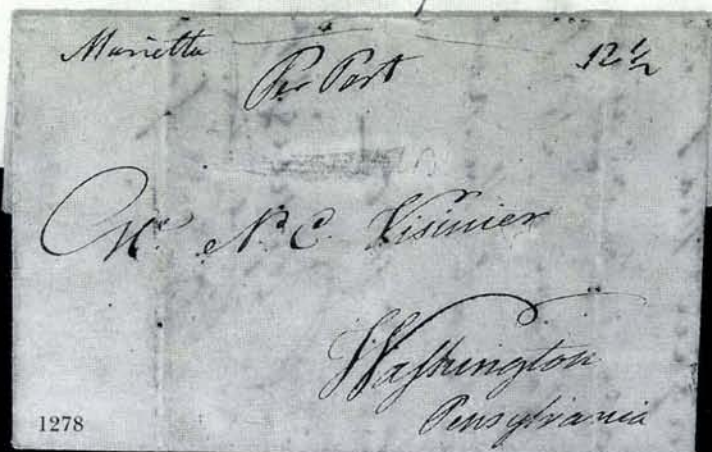 Marietta 12 ½
Per Post
Mr. N. C. Visinier
Washington
Pensylvania
1278